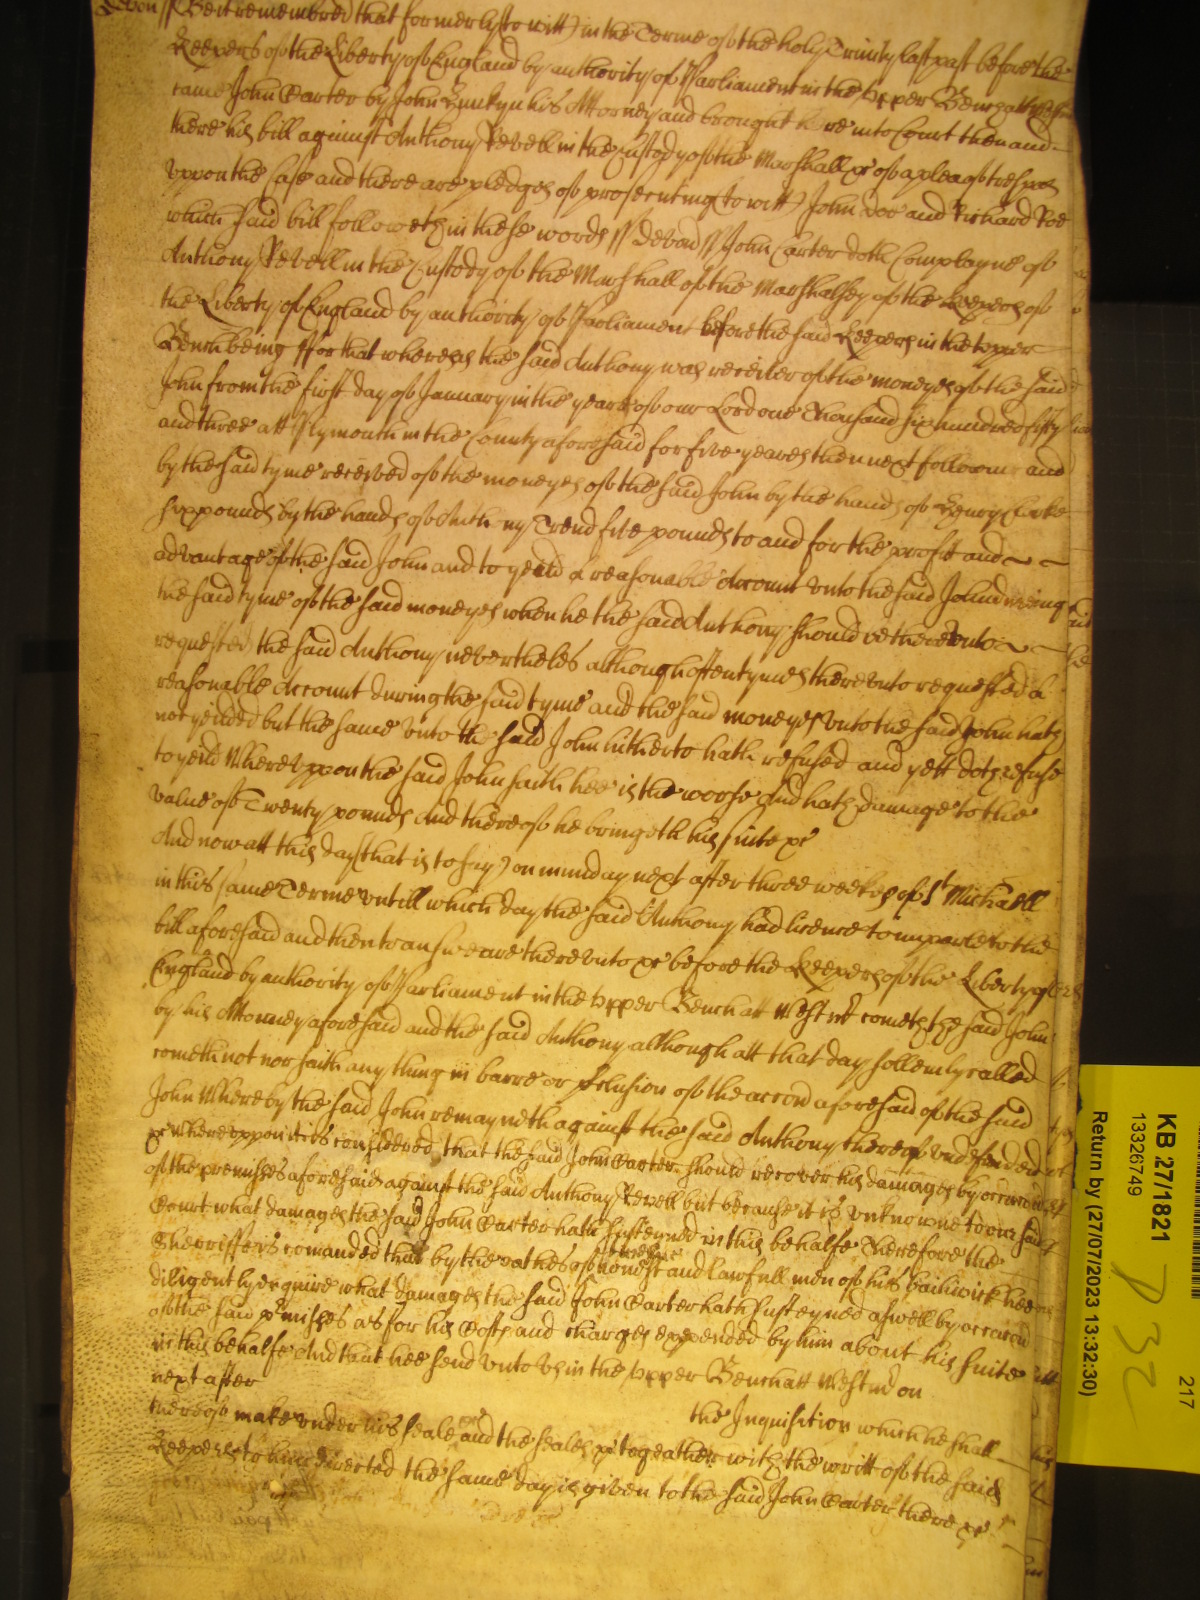 Devon // Be it remembred that formerly (to witt) in the Terme of the holy Trinity last past before the
Keepers of the Liberty of England by authority of Parliament in the upper Bench att Westm
came John Carter by John his Attorney and brought here into Court then and
there his bill against Anthony Revell in the Custody of the Marshall &c of a plea of trespas
uppon the Case and there are pledges of prosecuting (to witt) John doo and Richard Roe
which said bill followeth in these words // Devon // John Carter doth Complayne of
Anthony Revell in the Custody of the Marshall of the Marshalsey of the Keepers of
the Liberty of England by authority of Parliament before the said Keepers in the upper
Bench being ffor that whereas the said Anthony was receiver of the moneyes of the said
John from the first day of January in the yeare of our Lord one Thousand six hundred fifty
and three att Plymouth in the County aforesaid for five yeares then next followinge and
by the said tyme received of the moneyes of the said John by the hands of Henry
six pounds by the hands of Anthony Trend five pounds to and for the profit and
advantage of the said John and to yeild a reasonable Account unto the said John dureing
the said tyme of the said moneyes when he the said Anthony should be thereunto
requested the said Anthony nevertheles although oftentymes thereunto requested a
reasonable Account during the said tyme and the said moneyes unto the said John hath
not yeilded but the same unto the said John hitherto hath refused and yett doth refuse
to yeild Whereuppon the said John saith hee is the worse And hath damage to the
value of Twenty pounds And thereof he bringeth his suite &c
And now att this day (that is to say) on munday next after three weekes of St Michaell
in this same Terme untill which day the said Anthony had licence to imparle to the
bill aforesaid and then to answeare thereunto &c before the Keepers of the Liberty of
England by authority of Parliament in the upper Bench att Westmr cometh the said John
by his Attorney aforesaid and the said Anthony although att that day sollemly called
cometh not nor saith any thing in barre or p'clusion of the accon aforesaid of the said
John Whereby the said John remayneth against the said Anthony thereof undefended
&c Whereuppon it is considered that the said John Carter should recover his damages by occasion
of the premisses aforesaid against the said Anthony Revell but because it is unknowne to our said
Court what damages the said John Carter hath susteyned in this behalfe Therefore the
Sherriffe is comanded that by the oathes of twelve honest and lawfull men of his bailiwick hee
diligently enquire what damages the said John Carter hath susteyned aswell by occasion
of the said p'misses as for his Costs and charges expended by him about his suite
in this behalfe And that hee send unto us in the upper Bench att Westmr on
next after the Inquisition which he shall
thereof make under his seale and the seales &c togeather with the writt of the said
Keepers to him directed the same day is given to the said John Carter there &c
KB 27/1821
13326749
Return by (27/07/2023 13:32:30)
217